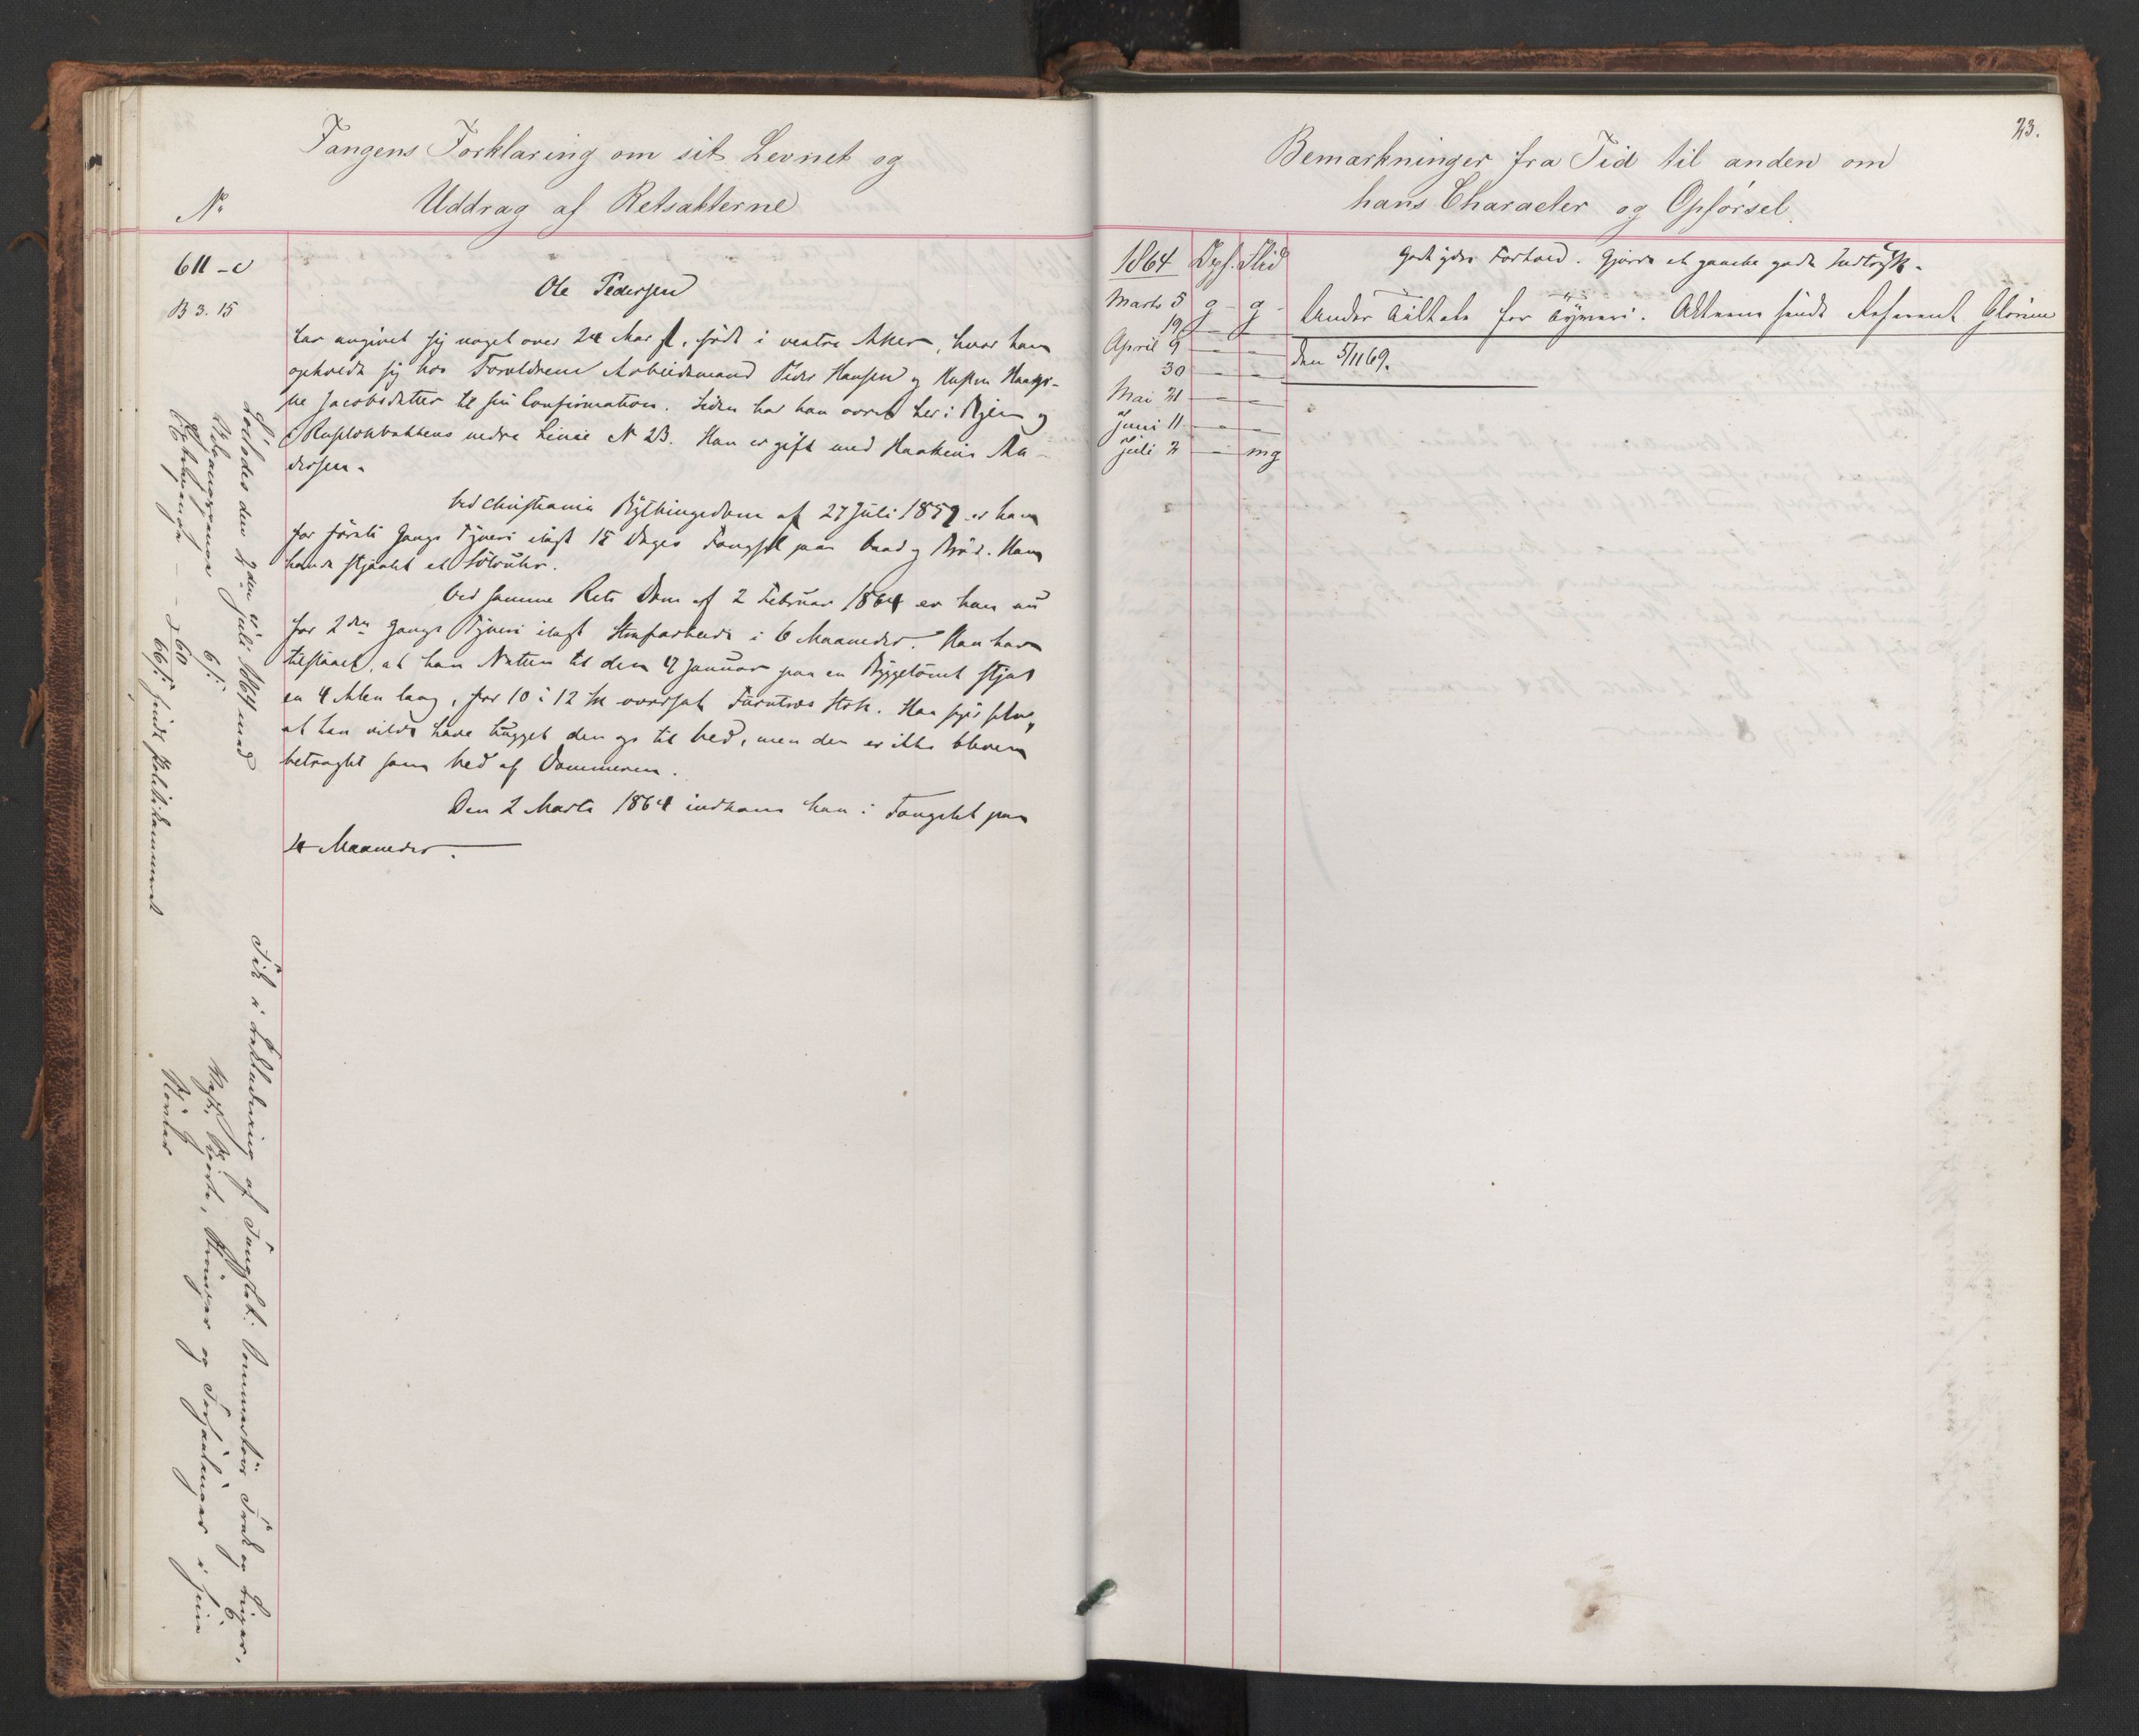 Fangens Forklaring om sit Levnet og
Uddrag af Retsakterne
No
611 - c
B 3. 15
Ole Pedersen
har angivet sig noget over 24 Aar gl, född i vestre Aker, hvor han
opholdt sig hos Forældrene Arbeidsmand Peder Hansen og Hustru
Jacobsdatter til sin Confirmation. Siden har han været her i Byen og
i Ruselökbakkens nedre Linie No 23. Han er gift med
dersen.
Ved Christiania Bythingsdom af 27 Juli 1859 er han
for förste Gangs Tyveri ilagt 15 Dages Fængsel paa Vand og Bröd. Han
havde stjaalet et Sölvuhr.
Ved samme Rets Dom af 2 Februar 1864 er han nu
for 2den Gangs Tyveri ilagt Strafarbeide i 6 Maaneder. Han har
tilstaaet, at han Natten til den 9 Januar paa en Byggetomt stjal
en 4 Alen lang, for 10 à 12 sk værdsat Furutræs Stok. Han siger selv,
at han vilde have hugget den op til Ved, men den er ikke bleven
betragtet som Ved af Dommeren.
Den 2 Marts 1864 indkom han i Fængslet paa
4 Maaneder.
Löslodes den 2den Juli 1864 med
Belönningspenge 6 s.
Extrapenge - - 60
66 s. sendt Politikammeret
Fik i Beklædning af Fængslet: Sommertöis Frak og Tröier,
Vest, Skjorte, Strömper og Forsaalinger i sine
Stövler
23.
Bemærkninger fra Tid til anden om
hans Character og Opførsel.
1864 Opf. Flid
Marts 5 g - g -
19
April 9
30
Mai 21
Juni 11
Juli 2 - mg
godt ydre Forhold. Gjorde et ganske godt Indtryk.
Under Tiltale for Tyveri. Akterne sendt Referent
den 5/11 69.